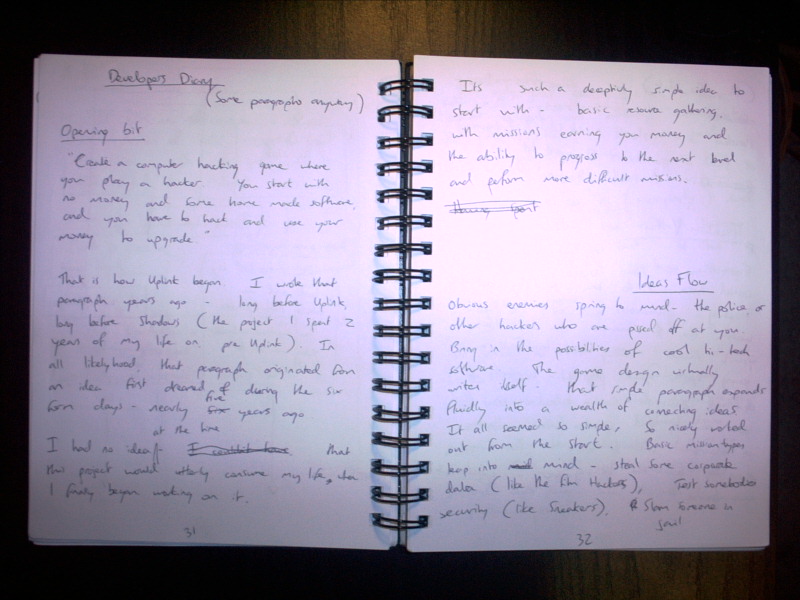 Developers Diary
(Some paragraphs anyway)
Opening bit
"Create a computer hacking game where
you play a hacker. You start with
no money and some home made software,
and you have to hack and use your
money to upgrade"
That is how Uplink began. I wrote that
paragraph years ago - long before Uplink,
long before Shadows (the project I spent 2
years of my life on, pre Uplink). In
all likelyhood, that paragraph originated from
an idea first dreamed of during the six
form days - nearly five years ago
at the time
I had no idea that
this project would utterly consume my life, when
I finally began working on it.
31
Its such a deceptively simple idea to
start with - basic resource gathering,
with missions earning you money and
the ability to progress to the next level
and perform more difficult missions.
Ideas Flow
Obvious enemies spring to mind - the police, or
other hackers who are pissed off at you.
Bring in the possibilities of cool hi-tech
software. The game design virtually
writes itself. that simple paragraph expands
fluidly into a wealth of connecting ideas
It all seemed so simple, so nicely worked
out from the start. Basic mission types
leap into mind - steal some corporate
data (like the film Hackers), Test somebodies
security (like Sneakers). Slam someone in
jail
32